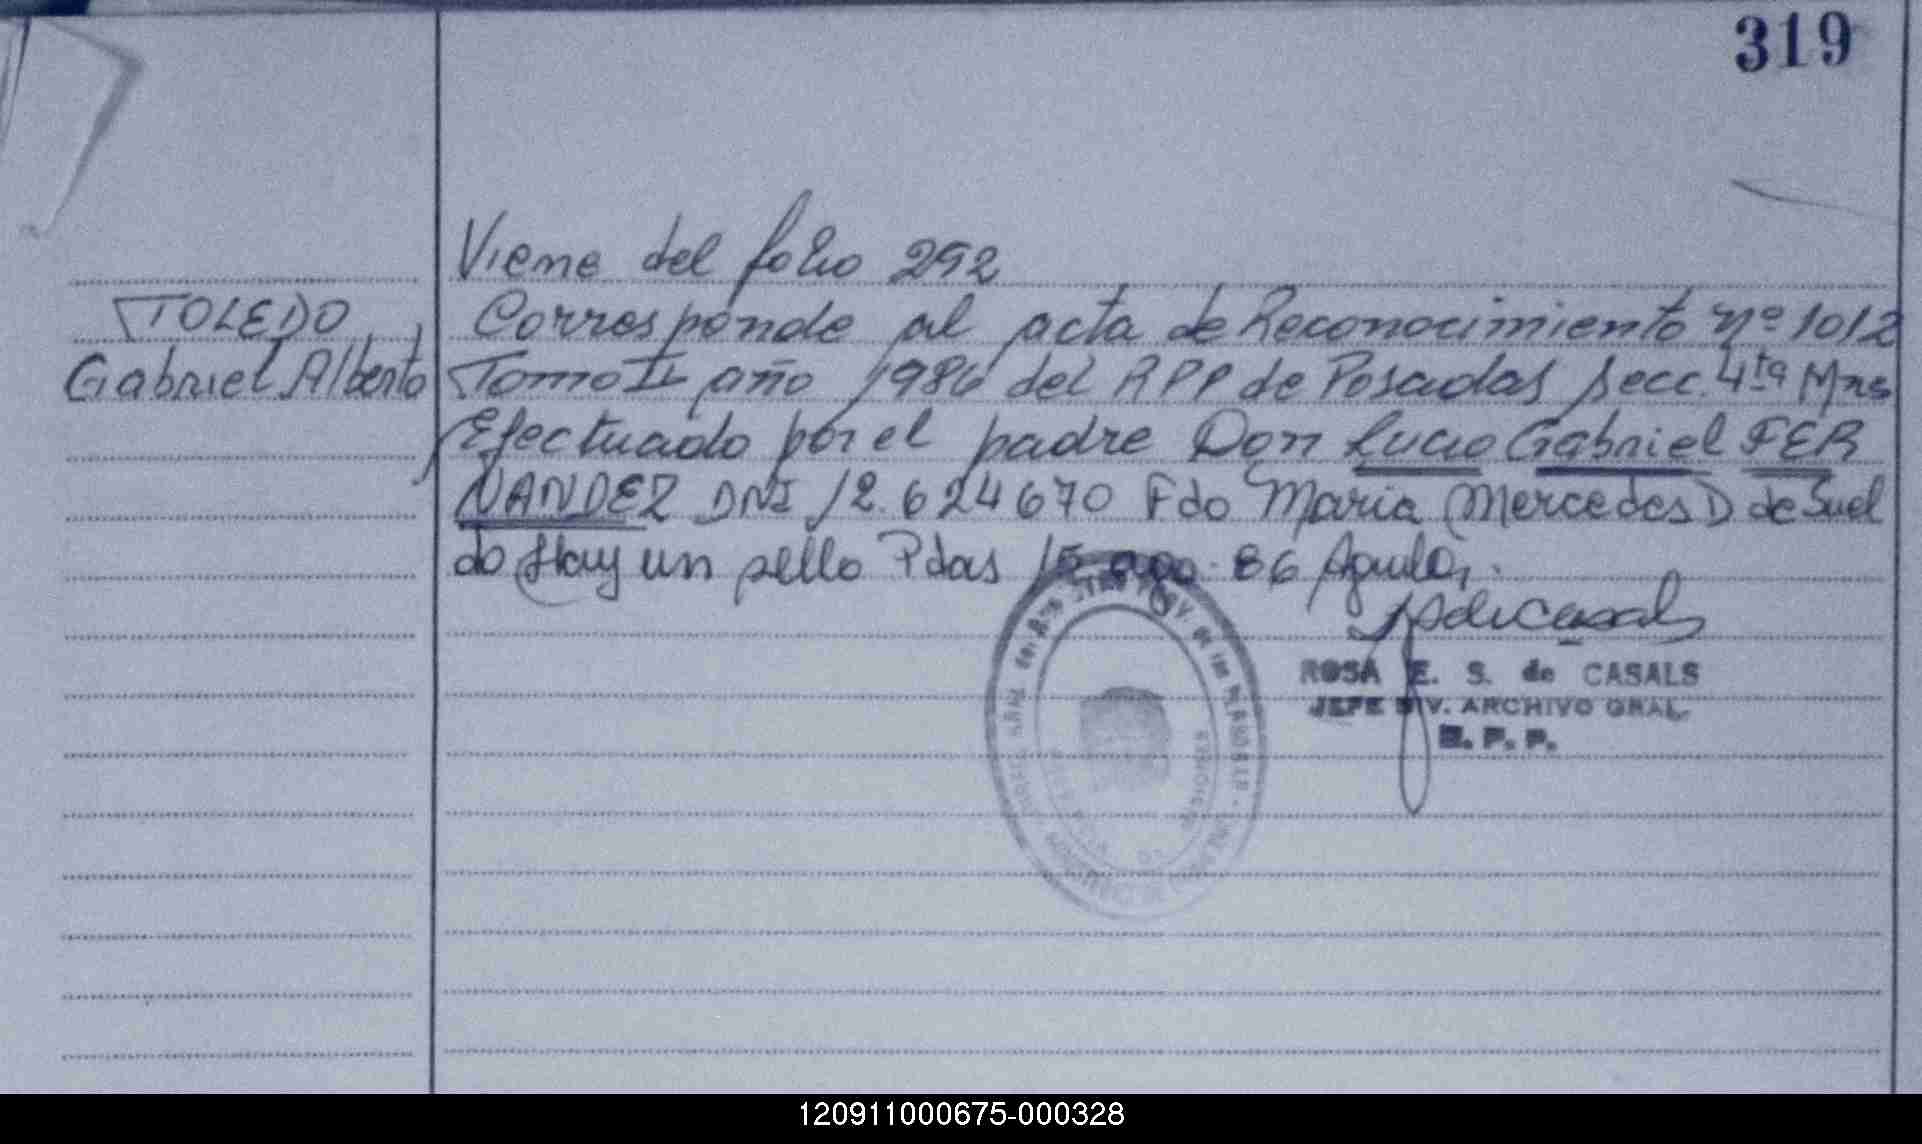 319
Viene del folio 292
TOLEDO
Gabriel Alberto
Corresponde al acta de Reconocimiento nº 1012
Tomo II año 1986 del RPP de Posadas secc. 4ta Mnes
Efectuado por el padre Don Lucio Gabriel FER
NANDEZ DNI 12.624670 Fdo Maria Mercedes D de Suel
do Hay un sello Pdas 15 ago. 86
ROSA E. S. de CASALS
JEFE DIV. ARCHIVO GRAL.
R. P. P.
120911000675-000328